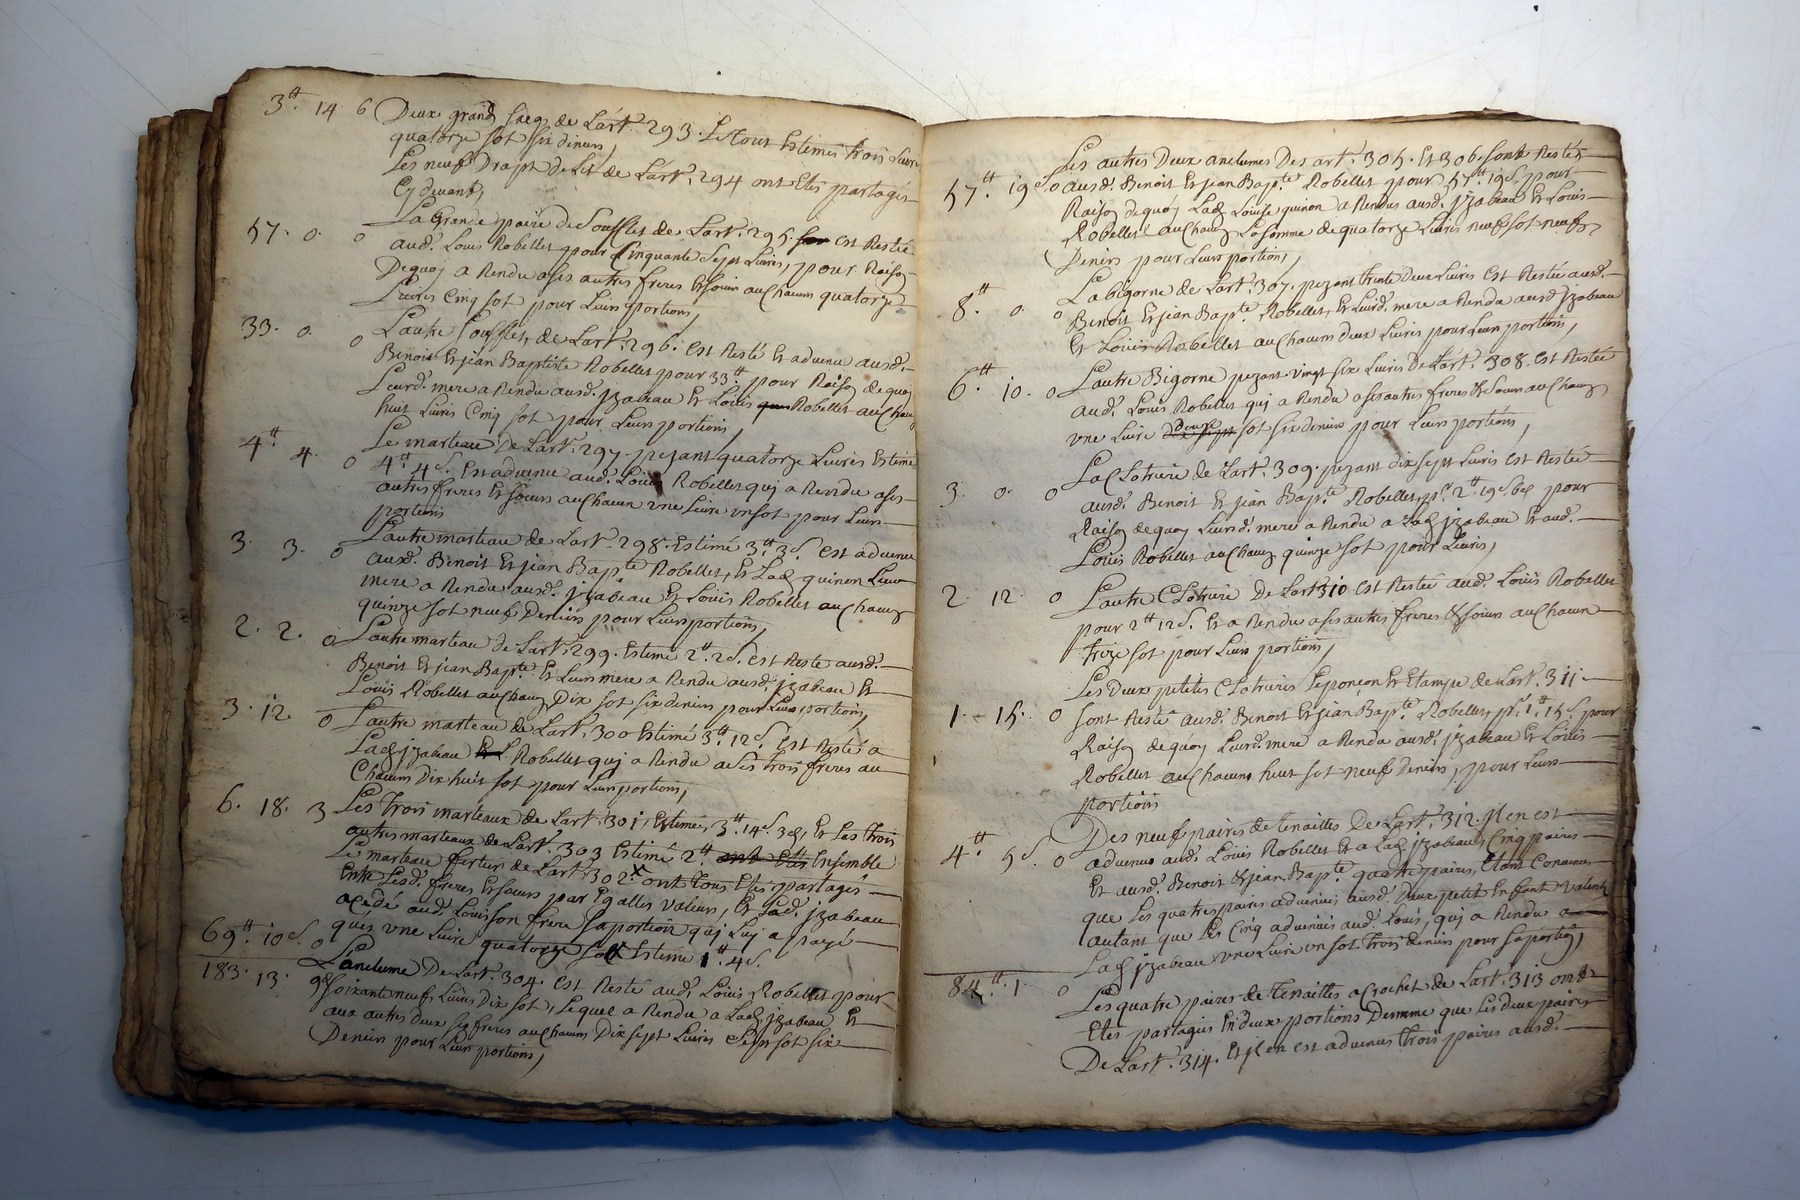 3ᵗᵗ 14 6 Deux grand sacq de L'art. 293. Le tout Estimés trois Livre
quatorze sol six deniers,
Les neuf Drapt de Lit de L'art. 294 ont Etés partagés
Cy devant,
La Grande paire de Soufflet de L'art. 295. est Restée
57. 0. 0 aud. Louis Robellet pour Cinquante sept Livres, pour Raison
Dequoy a Rendu a ses autres freres Et soeur au Chacun quatorze
Livres Cinq sol pour Leurs portions,
33. 0. 0 L'autre soufflet, de L'art. 296. est Resté Et advenu ausd.
Benoit Et jean Baptiste Robellet pour 33ᵗᵗ pour Raison de quoy
Leurd. mere a Rendu ausd. jzabeau Et Louis Robellet au Chacun
huit Livres Cinq sol pour Leurs portions,
Le marteau de L'art. 297. pezant quatorze Livres Estimé
4ᵗᵗ 4. 0 4ᵗᵗ 4s. Est advenu aud. Louis Robellet quj a Rendu a ses
autres freres Et soeurs au Chacun une Livre un sol pour Leurs
portions
3. 3. 0 L'autre marteau de L'art. 298. Estimé 3ᵗᵗ 3s. est advenu
ausd. Benoit Et jean Bapᵗᵉ Robellet, Et Lad. quinon Leur
mere a Rendu ausd. jzabeau Et Louis Robellet au Chacun
quinze sol neuf Deniers pour Leurs portions,
2. 2. 0 L'autre marteau de L'art. 299. Estimé 2ᵗᵗ 2s. est Resté ausd.
Benoit Et jean Bapᵗᵉ Et Leurs mere a Rendu ausd. jzabeau Et
Louis Robellet au Chacun Dix sol six deniers pour Leurs portions,
3. 12. 0 L'autre marteau de L'art. 300 Estimé 3ᵗᵗ 12s. est Resté a
Lad. jzabeau Robellet quj a Rendu a ses trois freres au
Chacun Dix huit sol pour Leurs portions,
6. 18. 3 Les trois marteaux de L'art. 301, Estimés 3ᵗᵗ 14s 3d, Et Las trois
autres marteaux de L'art. 303 Estimé 2ᵗᵗ ont Etés Ensemble
Le marteau de L'art. 302. ont tous Etés partagés
Entre Lesd. freres Et soeurs par Egalles valeurs, Et Lad. jzabeau
a Cedé aud. Louis son frere sa portion quj Luj a payé
une Livre quatorze sol Estimé 1ᵗᵗ 4s.
69ᵗᵗ 10s. 0 L'anclume De L'art. 304. est Resté aud. Louis Robellet pour
183. 13. 9 soixante neuf Livres Dix sol, Lequel a Rendu a Lad. jzabeau Et
aux autres deux ses freres au Chacun Dix sept Livres sept sol six
Deniers pour Leurs portions,
Les autres Deux anclumes Des art. 305. Et 306. sont Restés
57ᵗᵗ 19s. 0 ausd. Benoit Et jean Bapᵗᵉ Robellet pour 57ᵗᵗ 19s. pour
Raison dequoy Lad. Louise quinon a Rendus ausd. jzabeau Et Louis
Robellet au Chacun La somme de quatorze Livres neuf sol neuf
Deniers pour Leurs portions,
La bigorne de L'art. 307. pezant trente Deux Livres Est Restée ausd.
8ᵗᵗ 0. 0 Benoit Et jean Bapᵗᵉ Robellet, Et Leurd. mere a Rendu ausd. jzabeau
Et Louis Robellet au Chacun deux Livres pour Leurs portions,
6ᵗᵗ 10. 0 L'autre Bigorne pezant vingt six Livres De L'art. 308. est Restée
aud. Louis Robellet quj a Rendu a ses autres freres & Soeurs au Chacun
une Livre sol six deniers pour Leurs portions,
La Clotriere de L'art. 309. pezant dix sept Livres est Restée
3. 0. 0 ausd. Benoit Et jean Bapᵗᵉ Robellet, pʳ 2ᵗᵗ 19s 6d pour
Raison de quoy Leursd. mere a Rendu a Lad. jzabeau Et aud.
Louis Robellet au Chacun quinze sol pour Leurs,
2. 12. 0 L'autre Clotriere De L'art 310 est Restée aud. Louis Robellet
pour 2ᵗᵗ 12s. Et a Rendu a ses autres freres & soeurs au Chacun
treze sol pour Leurs portions,
Les Deux petites Clotrieres Le ponçon Et Etampe de L'art. 311
1. 15. 0 sont Resté ausd. Benoit Et jean Bapᵗᵉ Robellet, pʳ 1ᵗᵗ 15s. pour
Raison de quoy Leurd. mere a Rendu ausd. jzabeau Et Louis
Robellet au Chacuns huit sol neuf Deniers, pour Leurs
portions
Des neuf paires de tenailles De L'art. 312. jl en est
4ᵗᵗ 5s. 0 advenus aud. Louis Robellet Et a Lad. jzabeau, Cinq paires
Et ausd. Benoit & jean Bapᵗᵉ quatre paires, Etant Convenus
que Les quatre paires advenues ausd. Deux petit Enfant valent
autant que Les Cinq advenues aud. Louis, quj a Rendu a
Lad. jzabeau une Livre un sol trois Deniers pour sa portion,
84ᵗᵗ. 1. 0 Les quatre paires de tenailles a Crochet de L'art. 313 ont
Etés partagés En deux portions De meme que Les deux paires
De L'art. 314. Et jl en est advenus trois paires ausd.